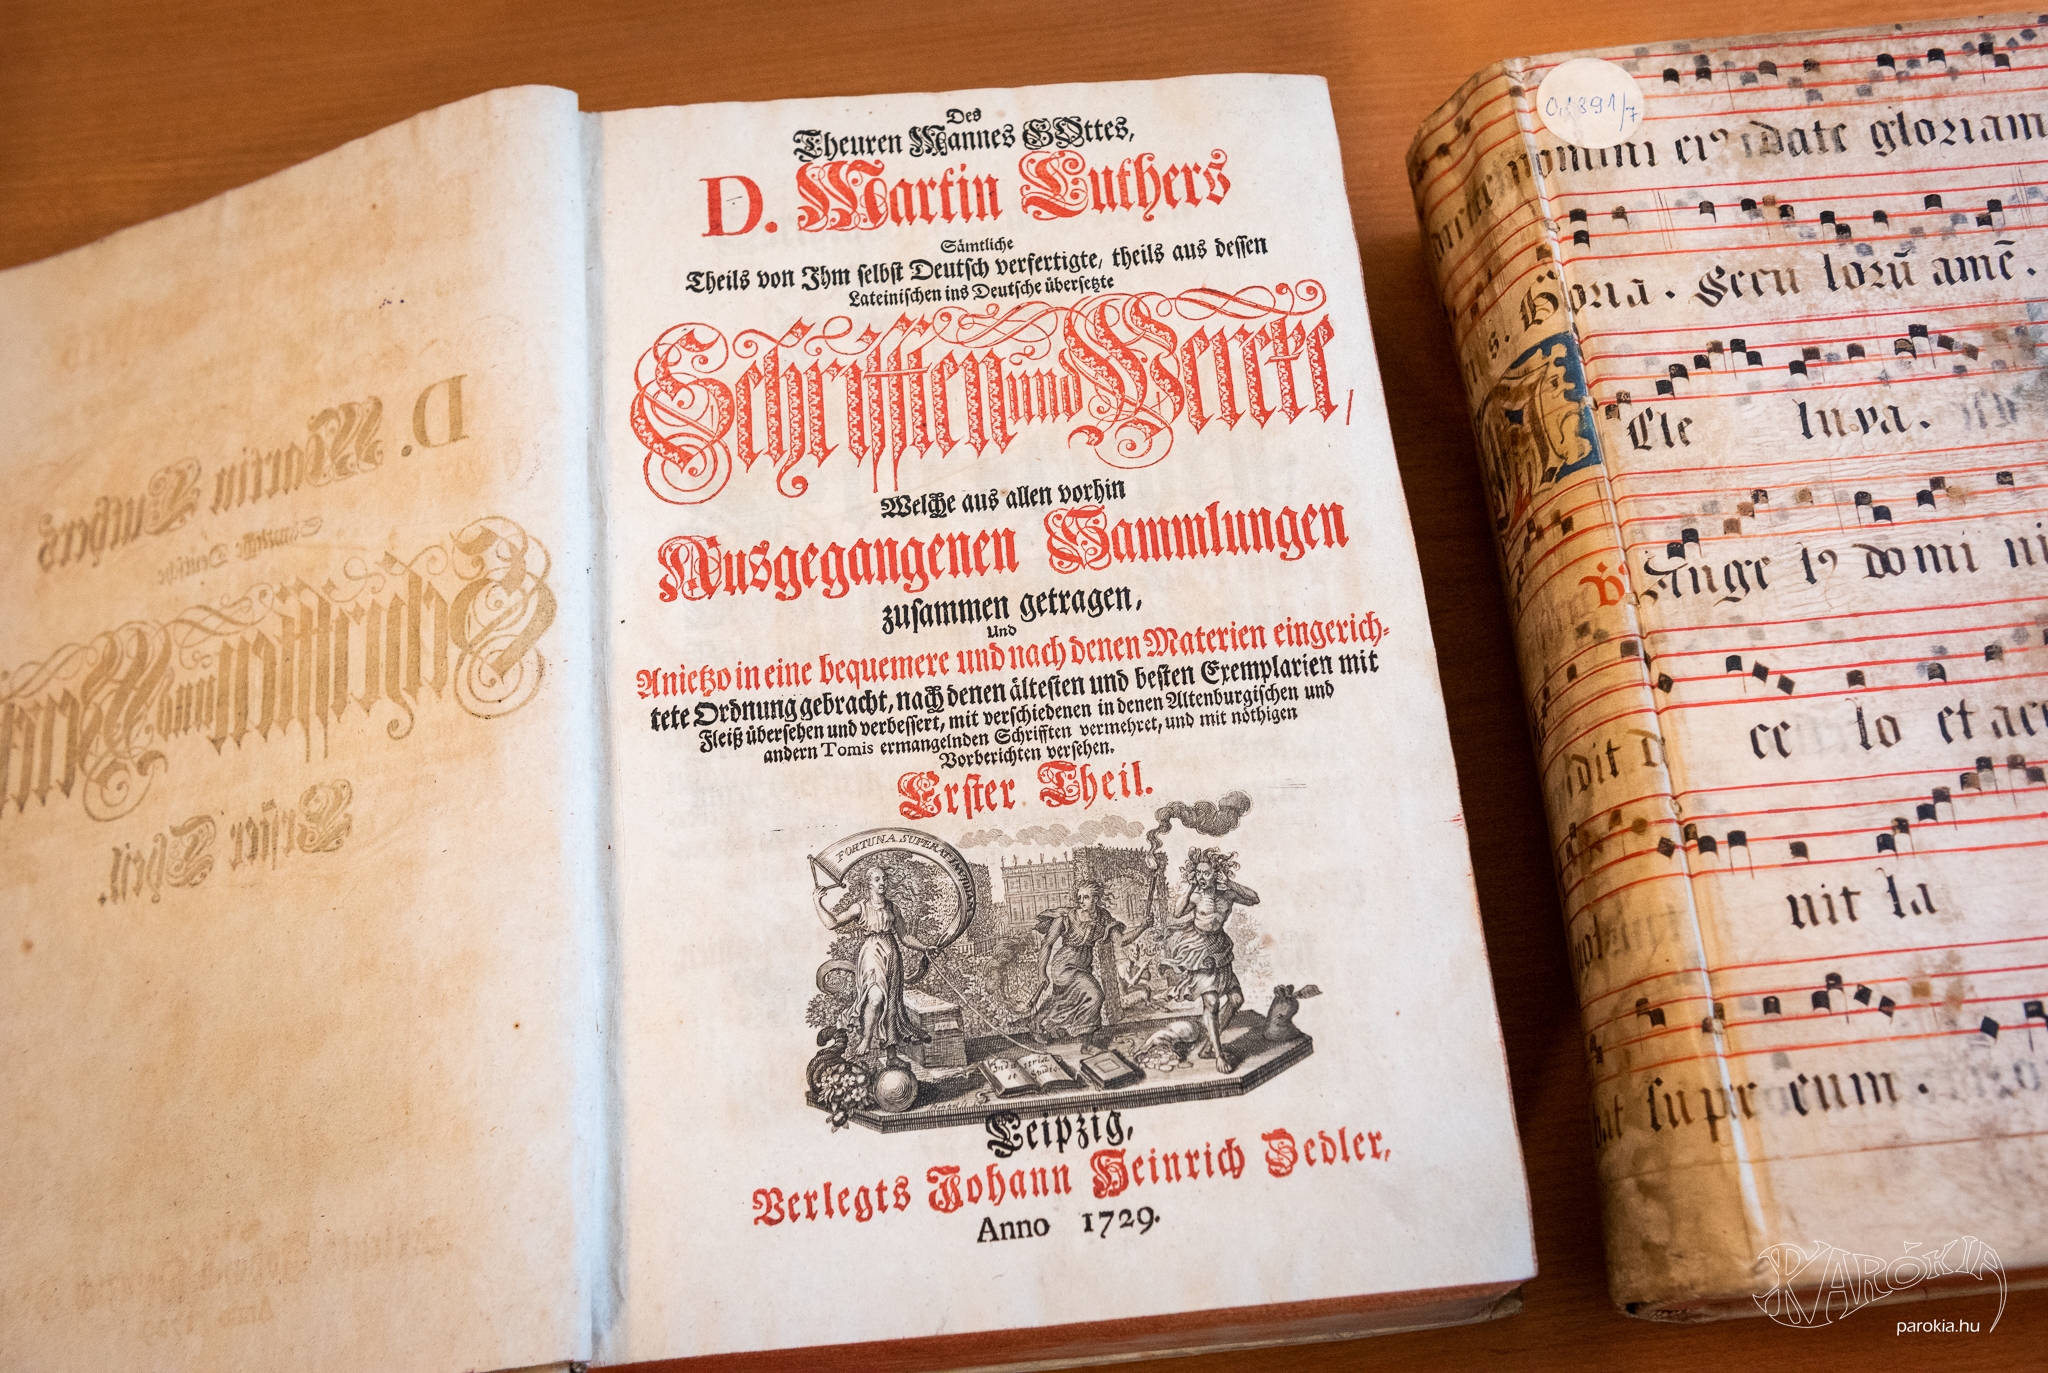 Des
Theuren Mannes GOttes,
D. Martin Luthers
Sämtliche
Theils von Ihm selbst Deutsch verfertigte, theils aus dessen
Lateinischen ins Deutsche übersetzte
Schrifften und Wercke,
Welche aus allen vorhin
Ausgegangenen Sammlungen
zusammen getragen,
Und
Anietzo in eine bequemere und nach denen Materien eingerich-
tete Ordnung gebracht, nach denen ältesten und besten Exemplarien mit
Fleiß übersehen und verbessert, mit verschiedenen in denen Altenburgischen und
andern Tomis ermangelnden Schrifften vermehret, und mit nöthigen
Vorberichten versehen.
Erster Theil.
FORTUNA SUPERAT
Leipzig,
Verlegts Johann Heinrich Zedler,
Anno 1729.
D. Martin Luthers
Sämtliche Deutsche
Schrifften und
Erster Theil.
nomini ei9 date gloriam
Gloria. Secu lorū amē.
lle luya.
Auge l9 domi ni
ce lo et acc
nit la
super eum.
PARÓKIA
parokia.hu